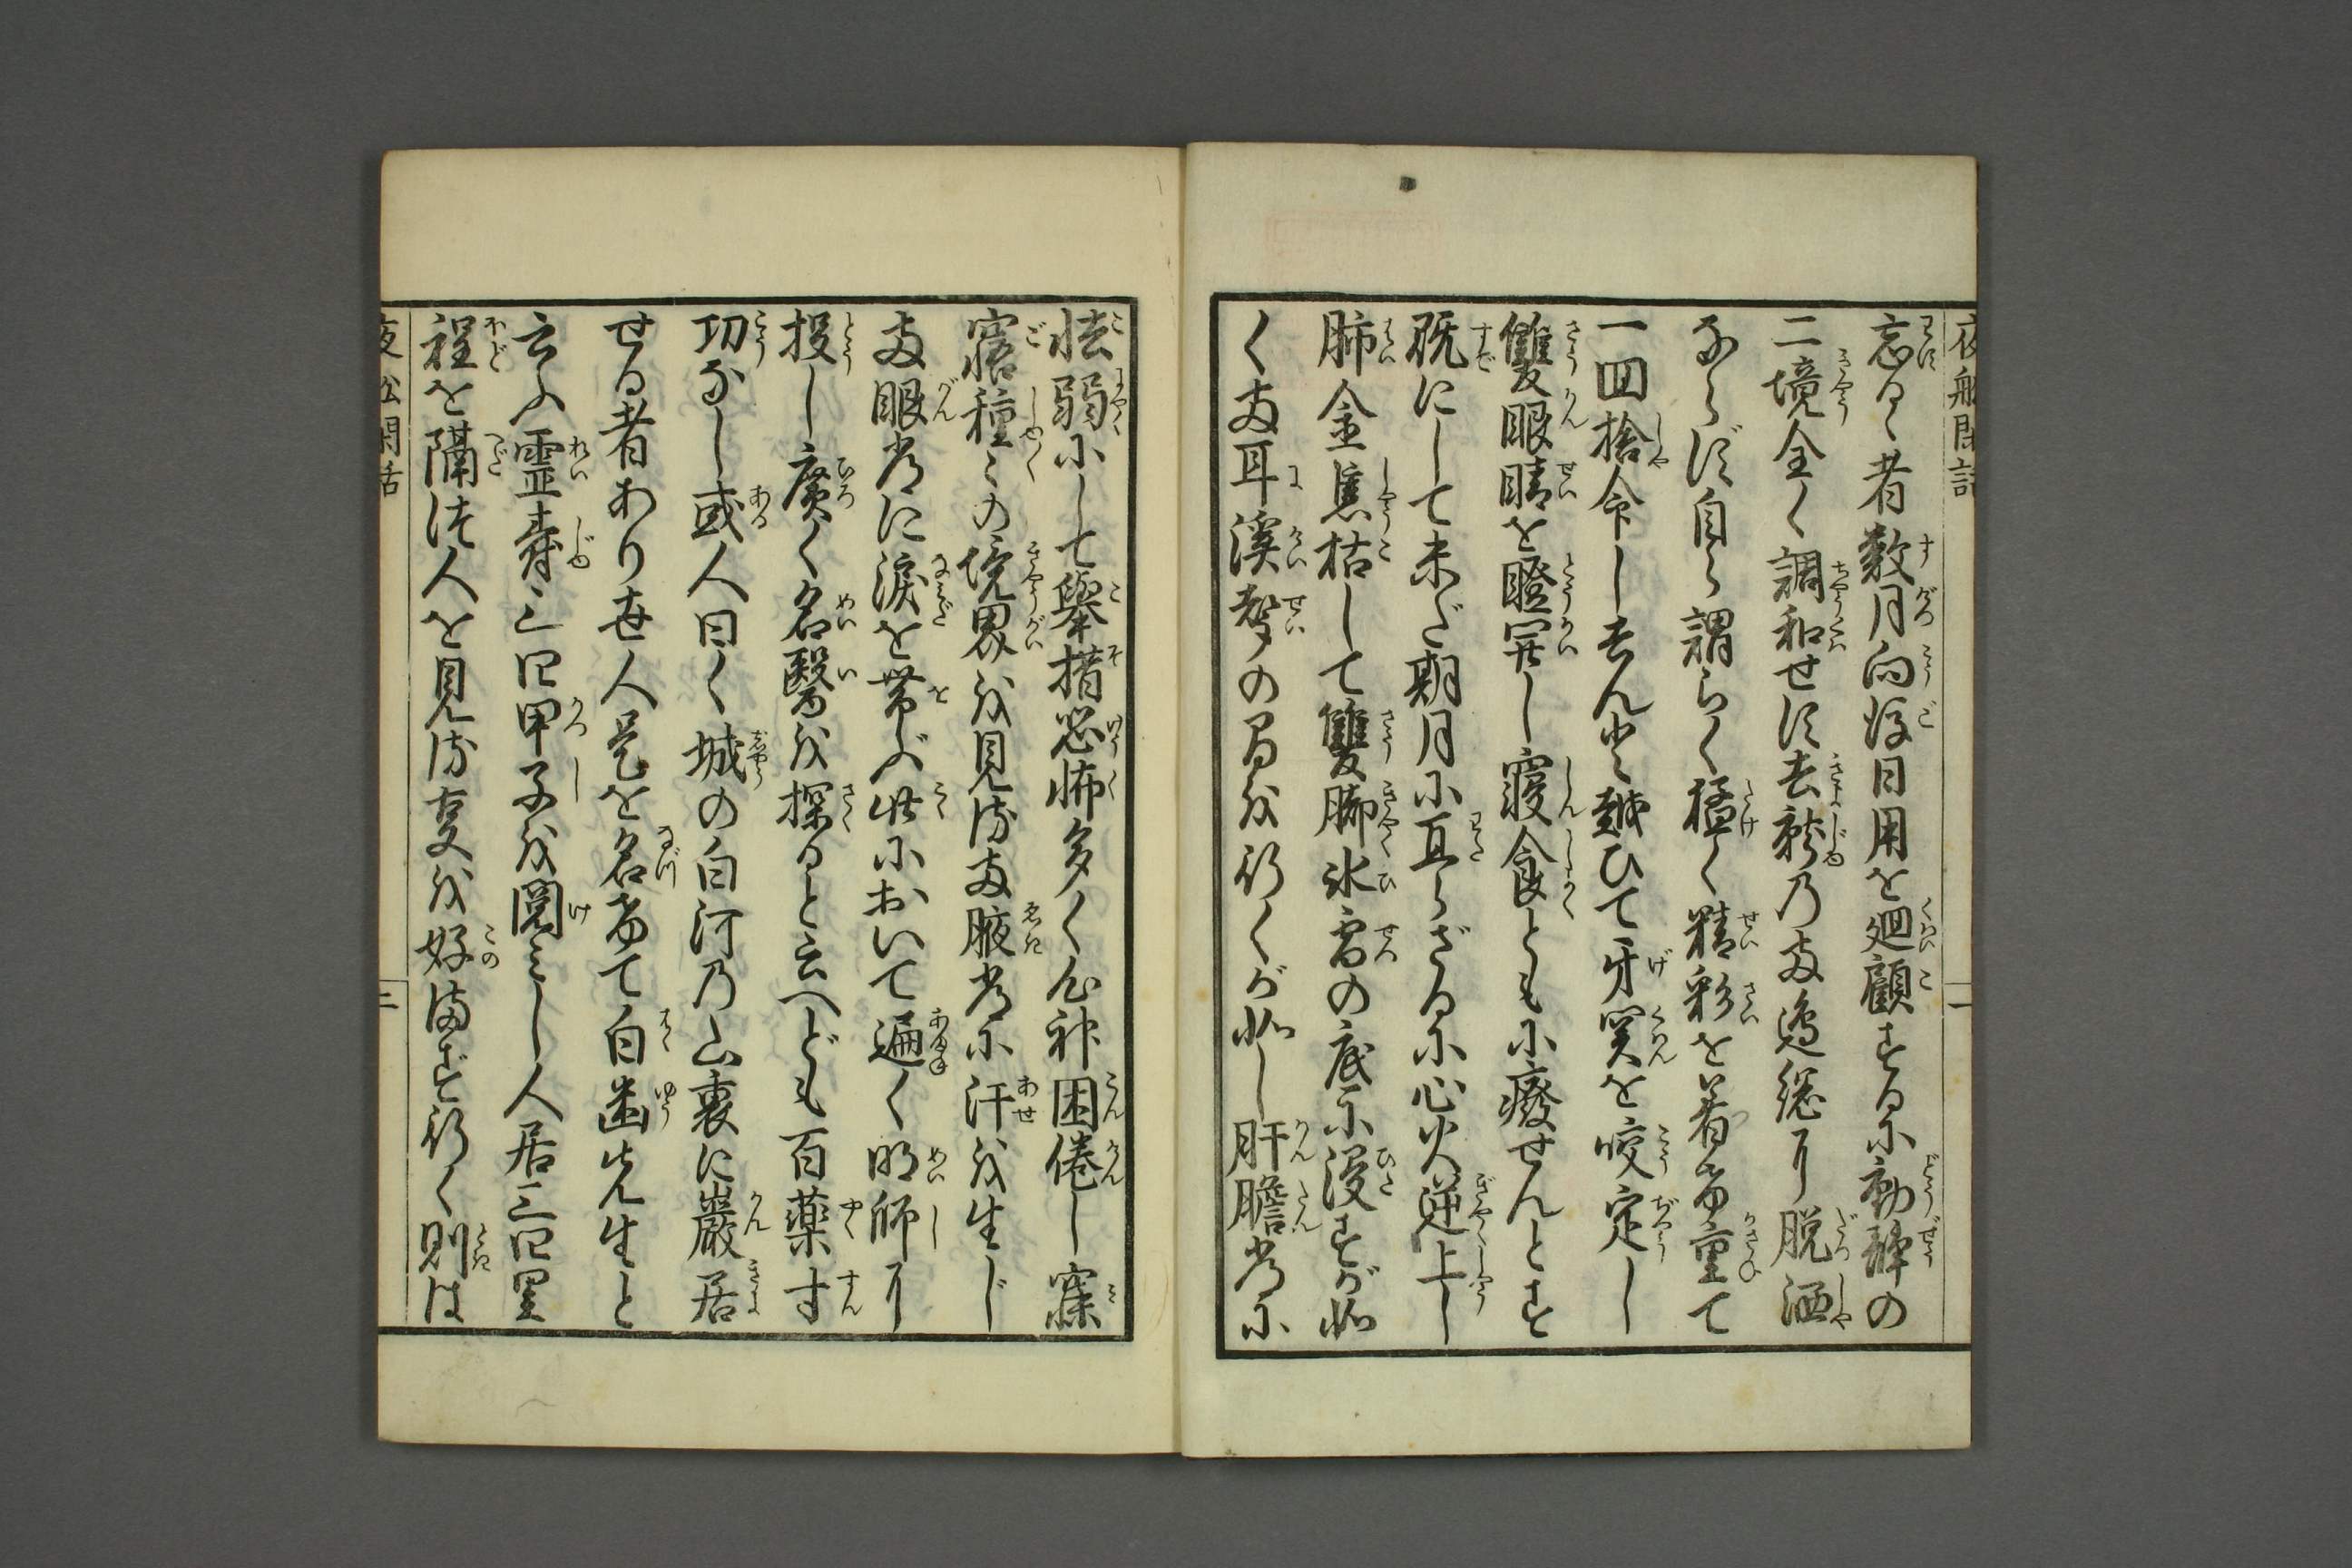 夜船閑話
一
忘るゝ者数月向後日用を廻顧するに動静の
二境全く調和せず去就乃両邉總に脱洒
ならず自ら謂らく猛く精彩を着け重て
一回捨命し去んと越ひて牙関を咬定し
雙眼睛を瞪開し寝食ともに癈せんとす
既にして未だ期月に亙らざるに心火逆上し
肺金焦枯して雙脚氷雪の底に浸すが如
く両耳溪聲の間を行くが如し肝膽常に
怯弱にして擧措恐怖多く心神困倦し寐
寤種々の境界を見る両腋常に汗を生じ
両眼常に淚を帯ぶ此において遍く明師に
投し廣く名醫を探ると云へども百薬寸
功なし或人曰く城の白河乃山裏に巌居
せる者あり世人是を名けて白幽先生と
云ふ霊壽三四甲子を閲みし人居三四里
程を隔つ人を見る事を好まず行く則は
夜船閑話
二